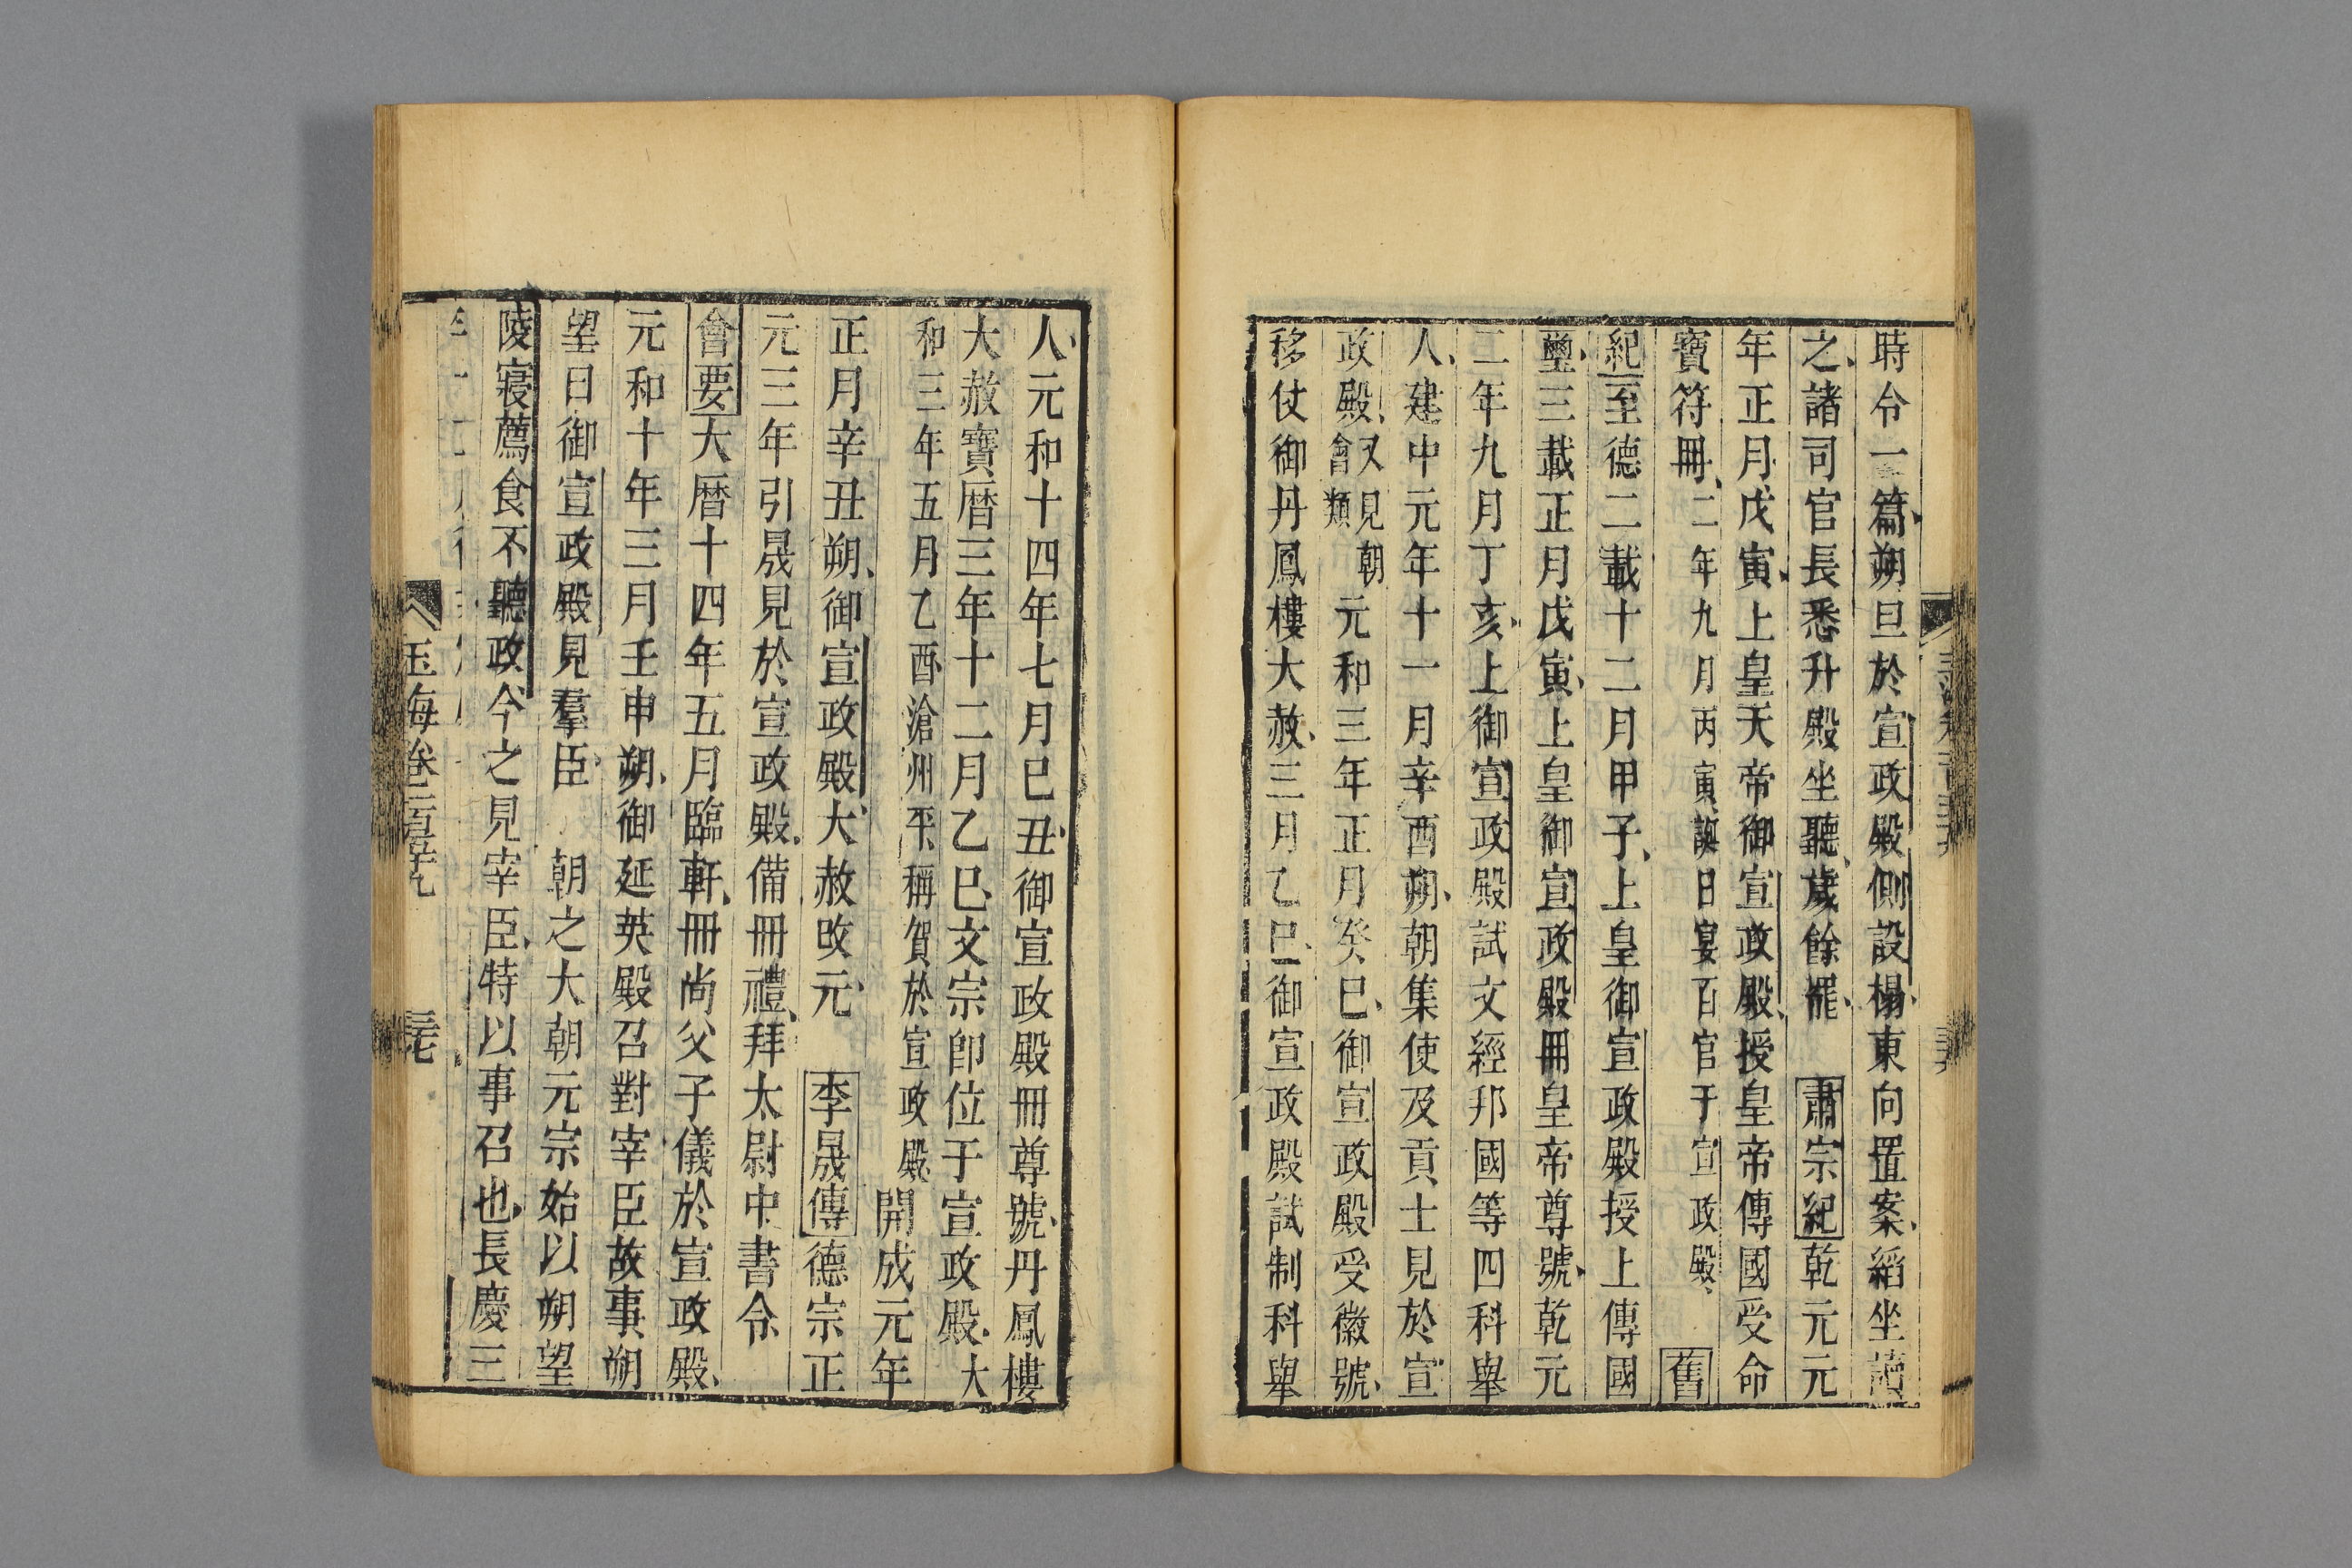 時令一篇朔旦於宣政殿側設榻東向置案縚坐讀
之諸司官長悉升殿坐聽歲餘罷 肅宗紀乾元元
年正月戊寅上皇天帝御宣政殿授皇帝傳國受命
寶符冊二年九月丙寅誕日宴百官于宣政殿 舊
紀至德二載十二月甲子上皇御宣政殿授上傳國
璽三載正月戊寅上皇御宣政殿冊皇帝尊號乾元
二年九月丁亥上御宣政殿試文經邦國等四科舉
人建中元年十一月辛酉朔朝集使及貢士見於宣
政殿又見朝會類元和三年正月癸巳御宣政殿受徽號
移仗御丹鳳樓大赦三月乙巳御宣政殿試制科舉
人元和十四年七月巳丑御宣政殿冊尊號丹鳳樓
大赦寶曆三年十二月乙巳文宗卽位于宣政殿大
和三年五月乙酉滄州平稱賀於宣政殿開成元年
正月辛丑朔御宣政殿大赦改元 李晟傳德宗正
元三年引晟見於宣政殿備冊禮拜太尉中書令
會要大曆十四年五月臨軒冊尚父子儀於宣政殿
元和十年三月壬申朔御延英殿召對宰臣故事朔
望日御宣政殿見羣臣 朝之大朝元宗始以朔望
陵寢薦食不聽政今之見宰臣特以事召也長慶三
玉海卷